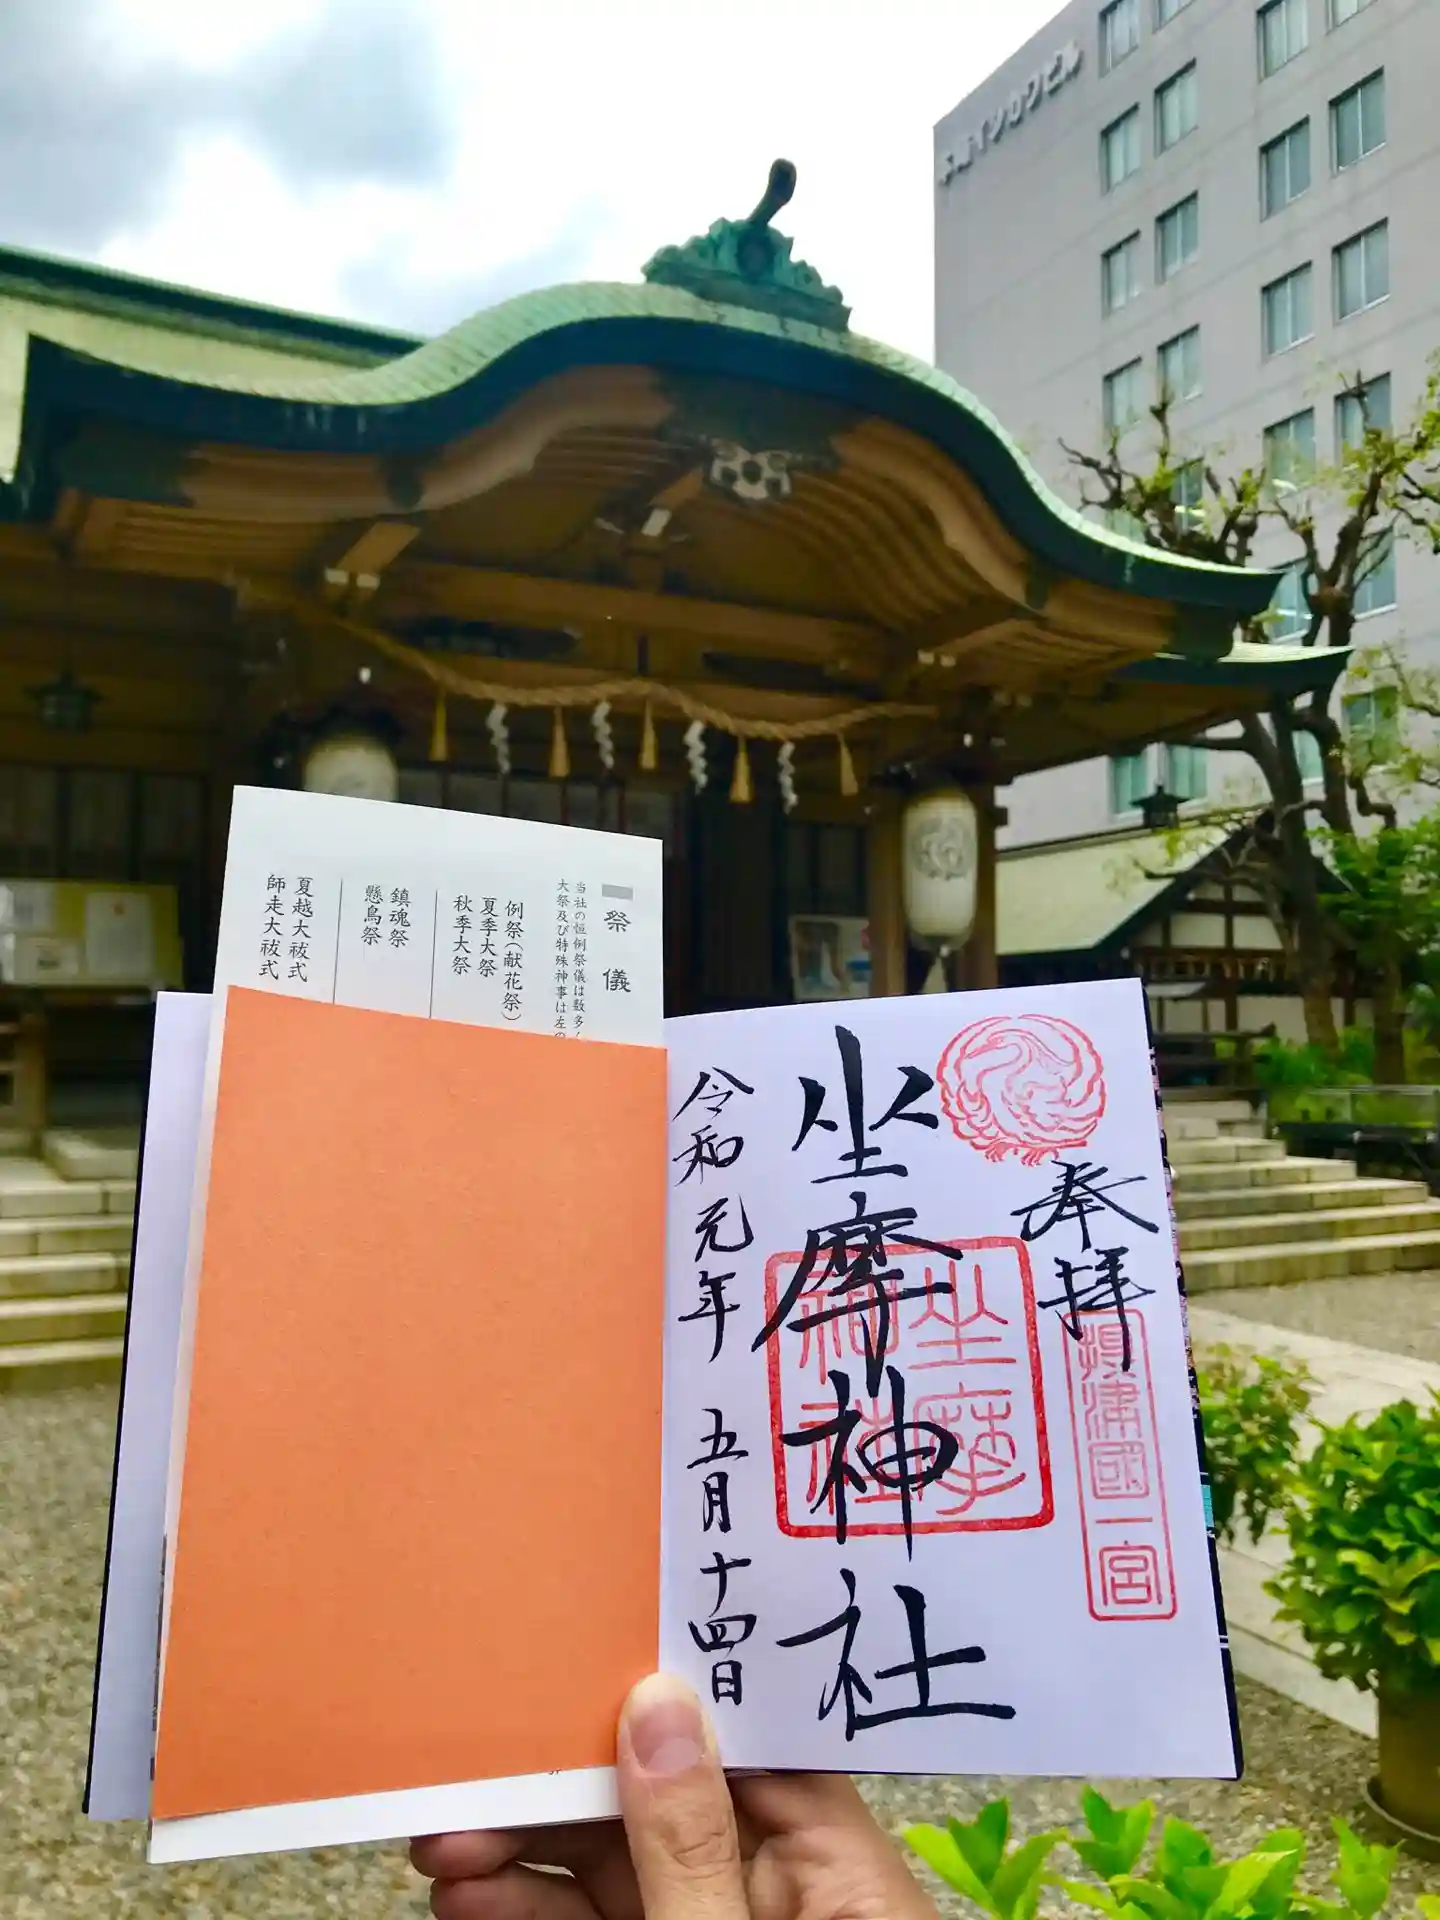 本町インカワビル
祭儀
当社の恒例祭儀は数多
大祭及び特殊神事は左の
例祭(献花祭)
夏季大祭
秋季大祭
鎮魂祭
懸鳥祭
夏越大祓式
師走大祓式
奉拝
摂津國一宮
坐摩神社
坐摩
神社
令和元年 五月十四日